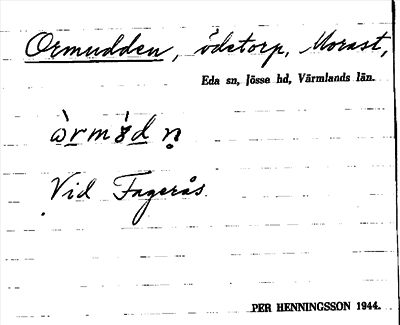 Ormudden, ödetorp, Morast,
Eda sn, Jösse hd, Värmlands län.
Vid Fagerås.
PER HENNINGSSON 1944.